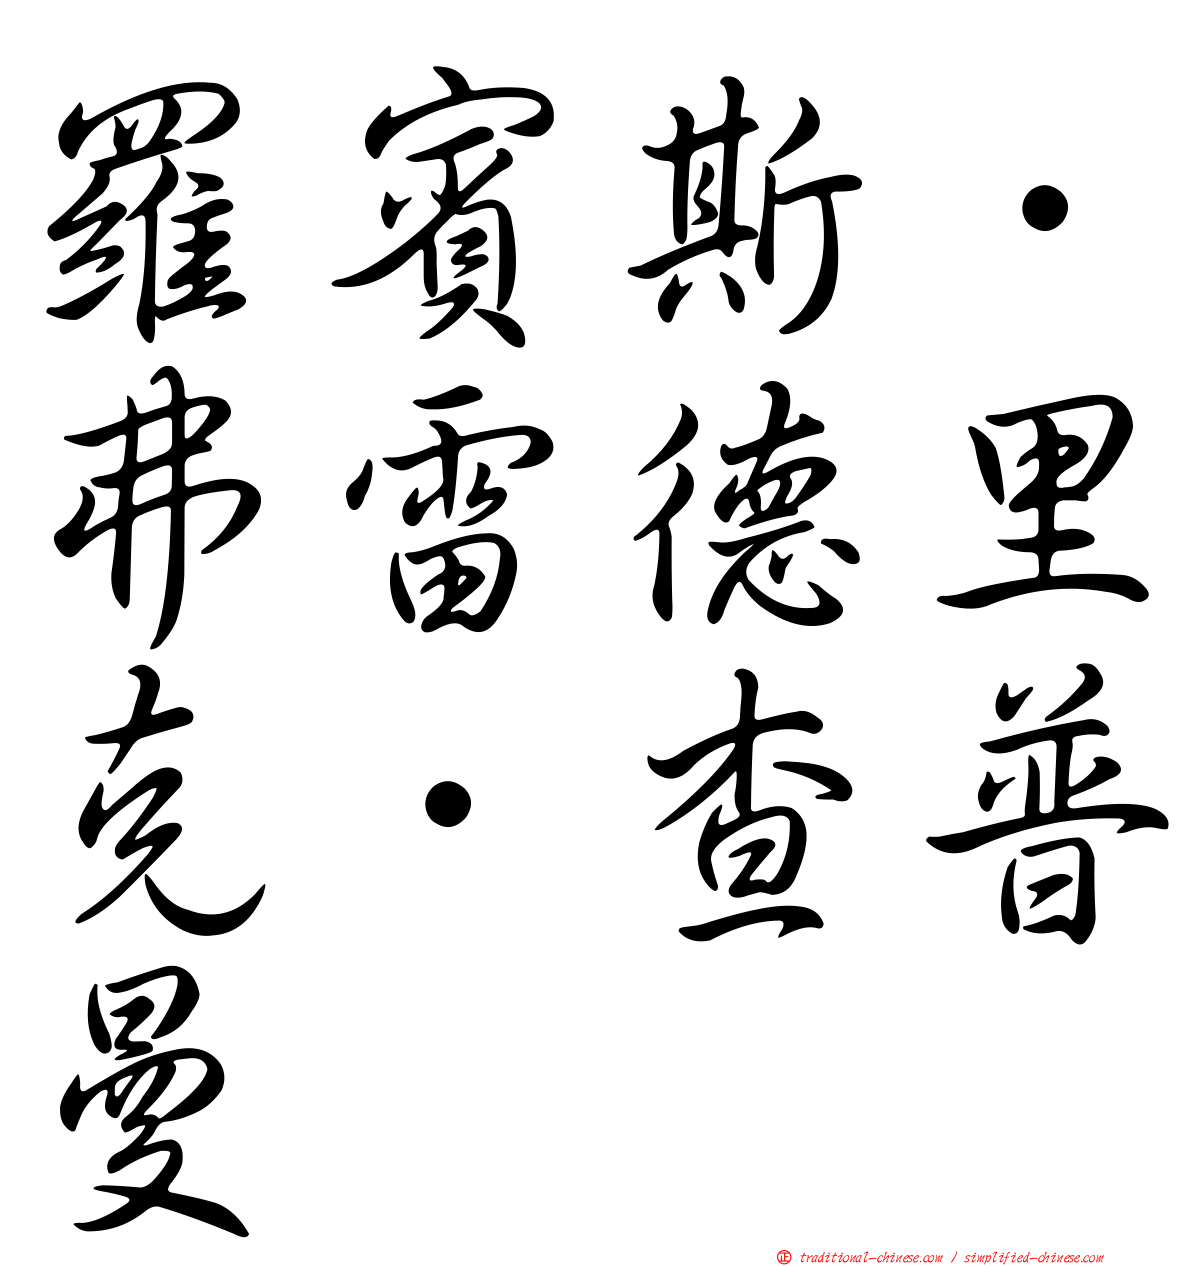 羅賓斯·
弗雷德里
克·查普
曼
㊣ traditional-chinese.com / simplified-chinese.com